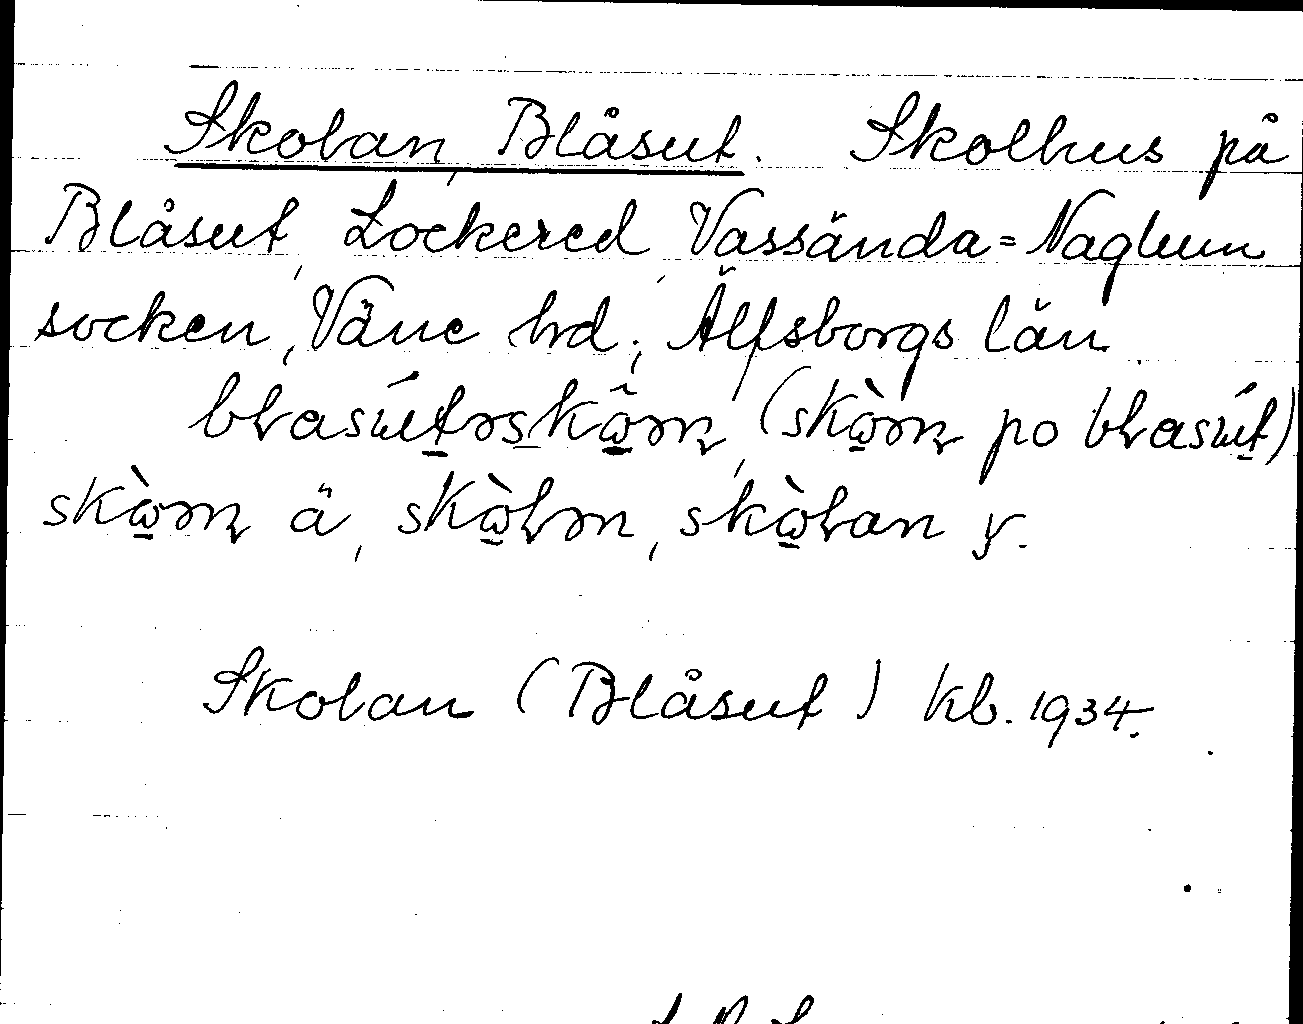 Skolan, Blåsut. Skolhus på
Blåsut, Lockered, Vassända=Naglum
socken, Väne hd; Älfsborgs län.
(skὼən po
skὼən ä, skὼlən, skὼlan y.
Skolan (Blåsut) kb. 1934.